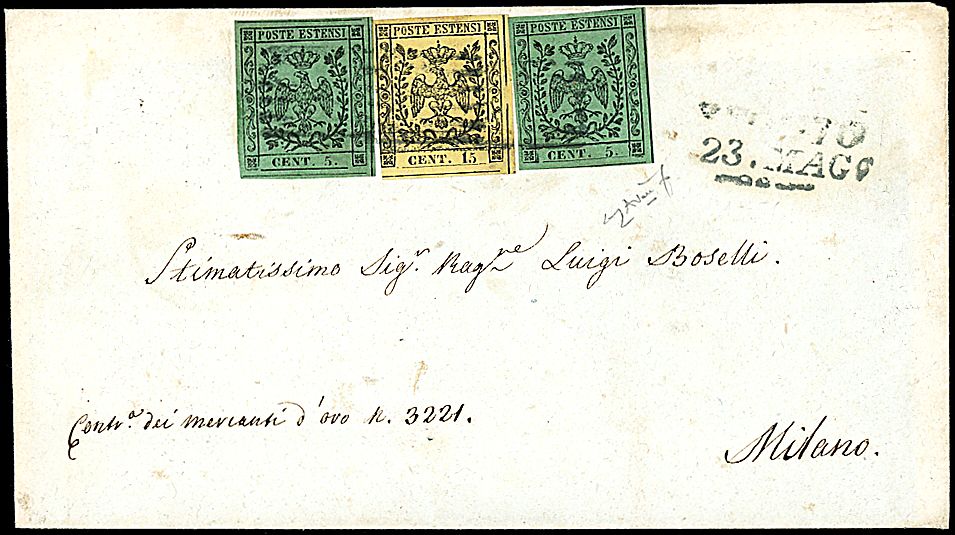 POSTE ESTENSI POSTE ESTENSI POSTE ESTENSI
CENT. 5. CENT. 15 CENT. 5.
23. MAGO
Stimatissimo Sigr. Ragre Luigi Boselli.
Contra. dei mercanti d'oro N. 3221.
Milano.